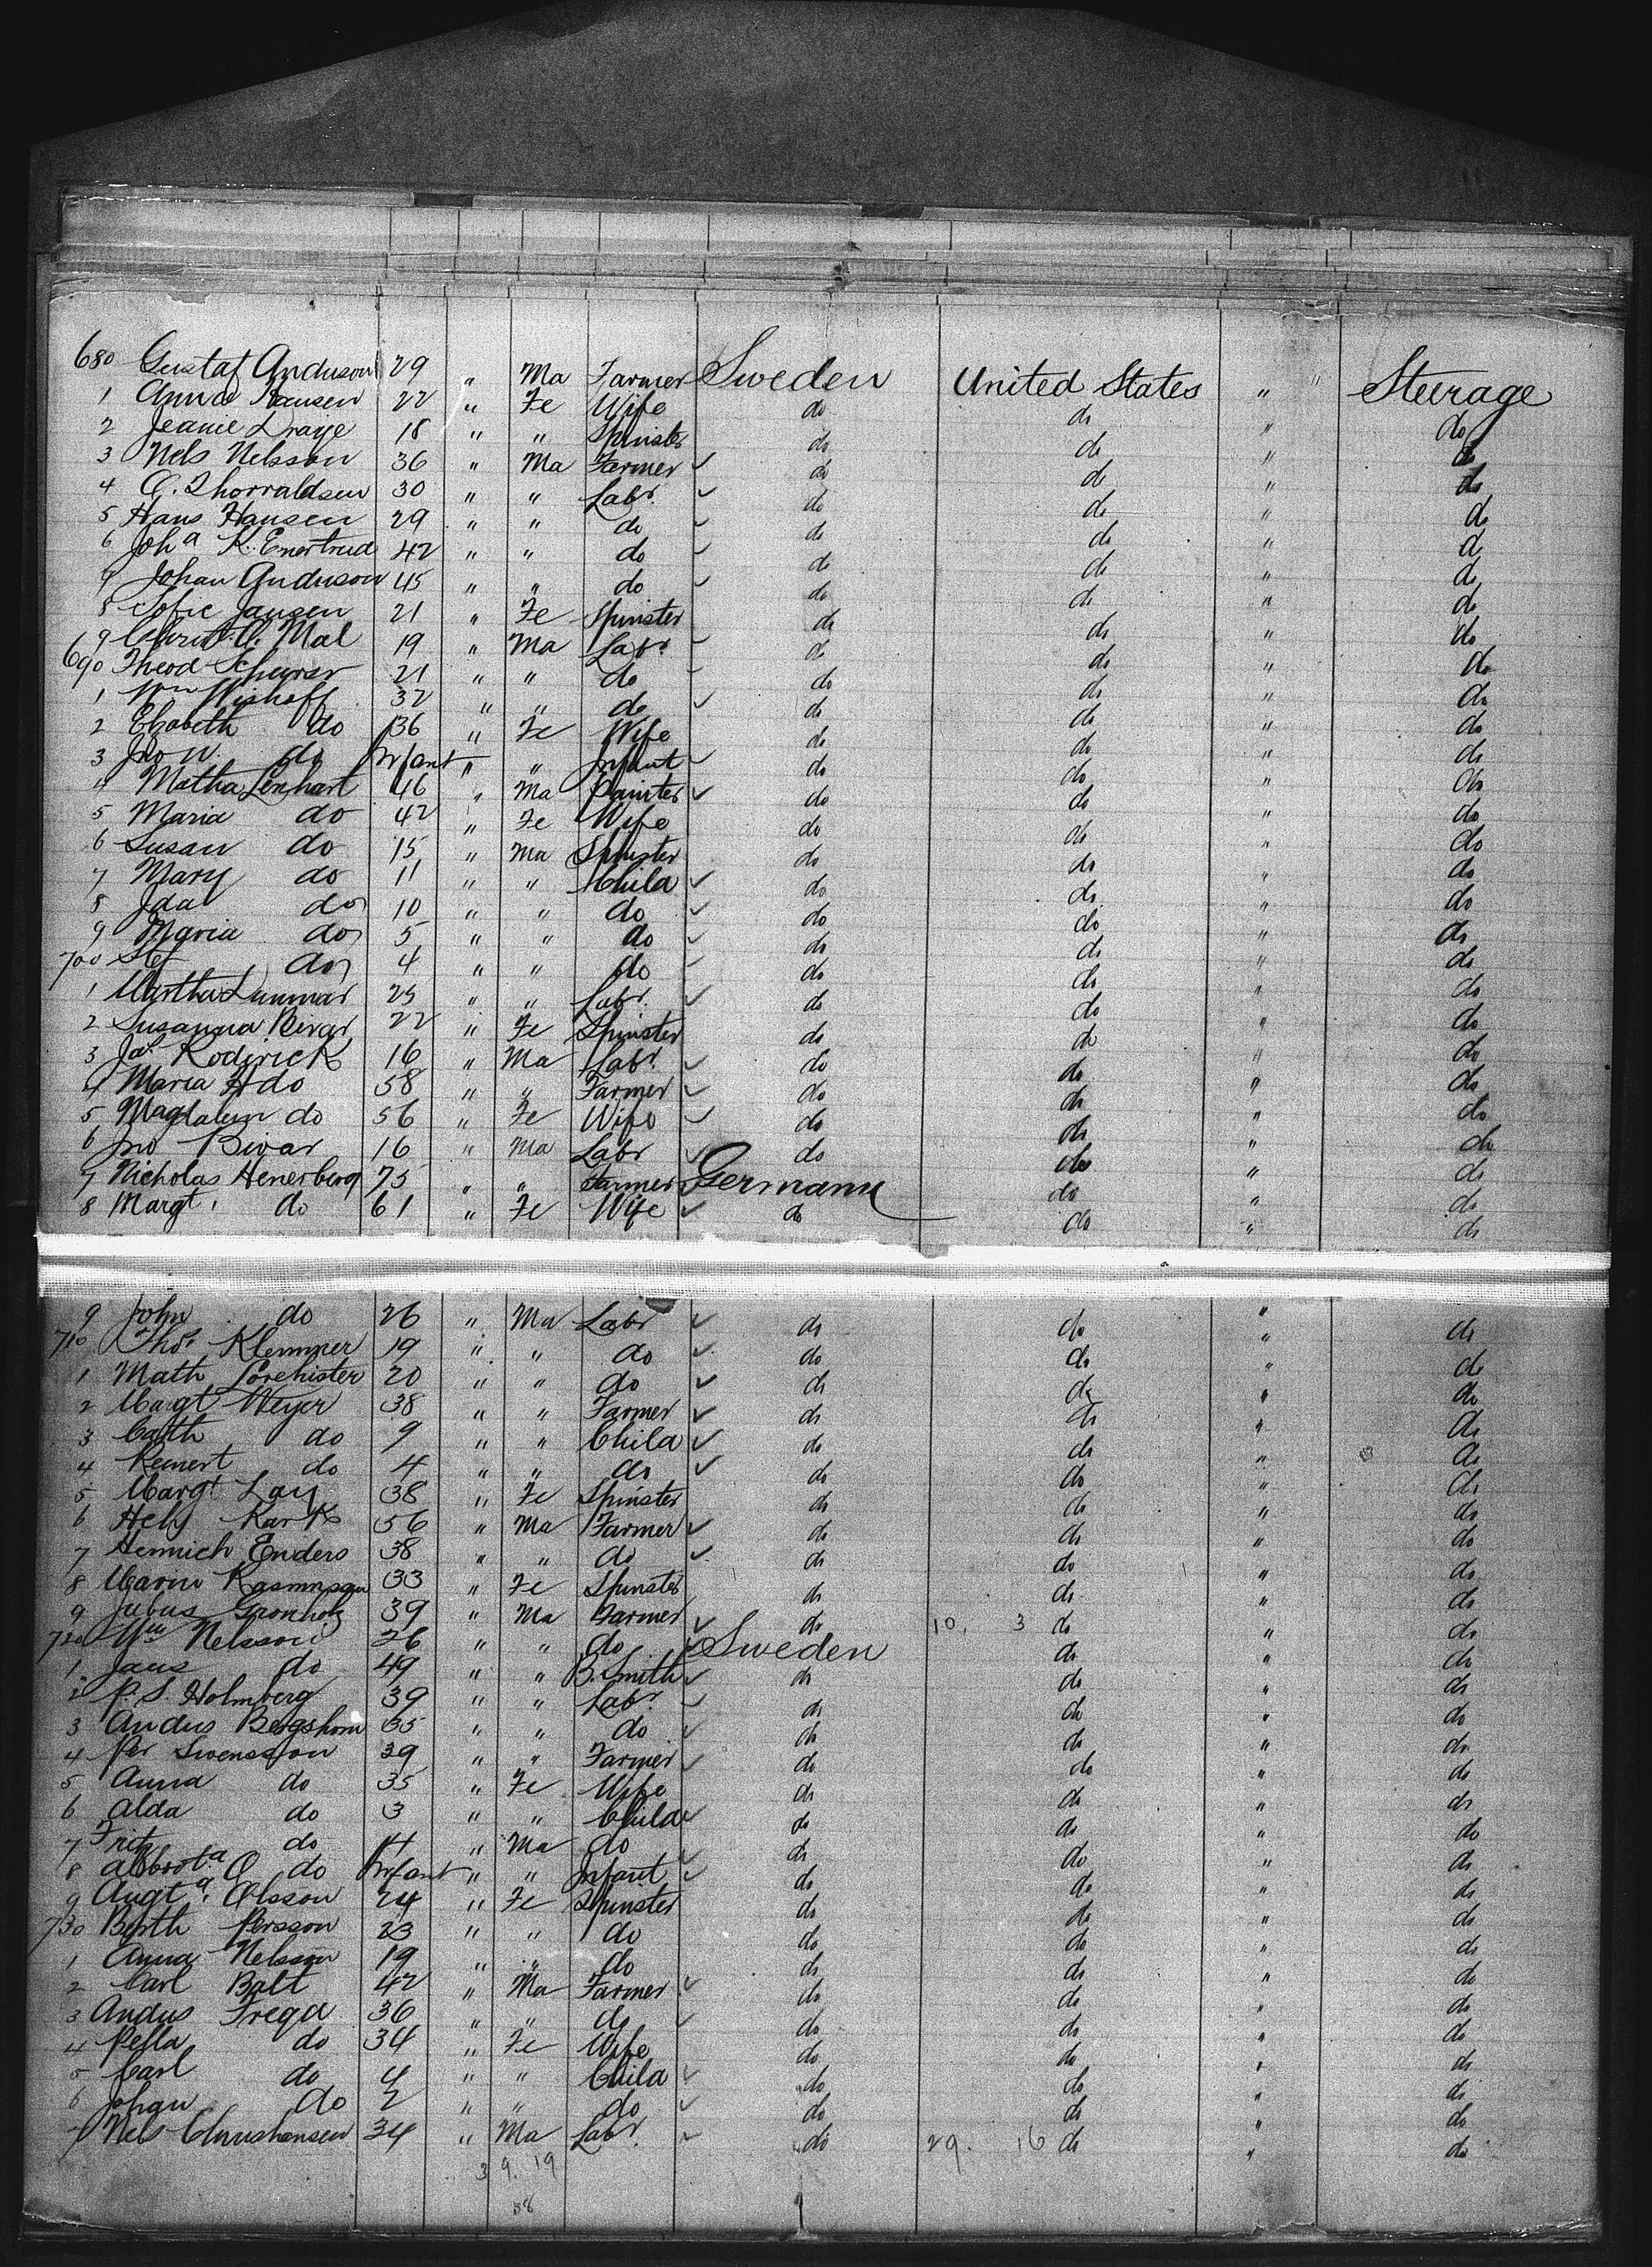 680 Gustaf Anduson 29 " Ma Farmer Sweden United States " Steerage
1 Anna Hansen 22 " Fe Wife do do " do
2 Jeanie Draye 18 " " Spinster do do " do
3 Nels Nelsson 36 " Ma Farmer do do " do
4 O. Thorraldsen 30 " " Labr. do do " do
5 Hans Hansen 29 " " do do do " do
6 Joha K. Enertrud 42 " " do do do " do
7 Johan Anduson 45 " " do do do " do
8 Sofie Jansen 21 " Fe Spinster do do " do
9 O. Mal 19 " Ma Labr. do do " do
690 Theod Scheurer 21 " " do do do " do
1 Wm Wishoff 32 " " do do do " do
2 Elizabeth do 36 " Fe Wife do do " do
3 Jno W. do Infant " " Infant do do " do
4 Matha Lenhart 46 " Ma Painter do do " do
5 Maria do 42 " Fe Wife do do " do
6 Susan do 15 " Ma Spinster do do " do
7 Mary do 11 " " Child do do " do
8 Ida do 10 " " do do do " do
9 Maria do 5 " " do do do " do
700 Stef do 4 " " do do do " do
1 Martha Lummar 25 " " Labr. do do " do
2 Susanna Bivar 22 " Fe Spinster do do " do
3 Jas. Roderick 16 " Ma Labr. do do " do
4 Maria A do 58 " " Farmer do do " do
5 Magdalem do 56 " Fe Wife do do " do
6 Jno Bivar 16 " Ma Labr do do " do
7 Nicholas Henerberg 75 " " Farmer Germany do " do
8 Margt. do 61 " Fe Wife do do " do
9 John do 26 " Ma Labr do do " do
710 Thos. Klemmer 19 " " do do do " do
1 Math Lorehister 20 " " do do do " do
2 Margt Weyer 38 " " Farmer do do " do
3 Cath do 9 " " Child do do " do
4 Reinert do 4 " " do do do " do
5 Margt. Lay 38 " Fe Spinster do do " do
6 Karks 56 " Ma Farmer do do " do
7 Hennich Enders 38 " " do do do " do
8 Marin Rasmusan 33 " Fe Spinster do do " do
9 Julius Gronholz 39 " Ma Farmer do 10. 3 do " do
720 Wm Nelsson 26 " " do Sweden do " do
1 Jans do 49 " " B. Smith do do " do
2 P. S. Holmberg 39 " " Labr. do do " do
3 Andus Bergshom 35 " " do do do " do
4 Per Swensson 39 " " Farmer do do " do
5 Anna do 35 " Fe Wife do do " do
6 Alda do 3 " " Child do do " do
7 Fritz do 4 " Ma do do do " do
8 O do Infant " " Infant do do " do
9 Augta. Olsson 24 " Fe Spinster do do " do
730 Berth Persson 23 " " do do do " do
1 Anna Nelsson 19 " " do do do " do
2 Carl Balt 42 " Ma Farmer do do " do
3 Andus Fregd 36 " " do do do " do
4 Pella do 34 " Fe Wife do do " do
5 Carl do 4 " " Child do do " do
6 Johan do 2 " " do do do " do
7 Nels Chrishansen 34 " Ma Labr. do 29. 16 do " do
3 9. 19
58